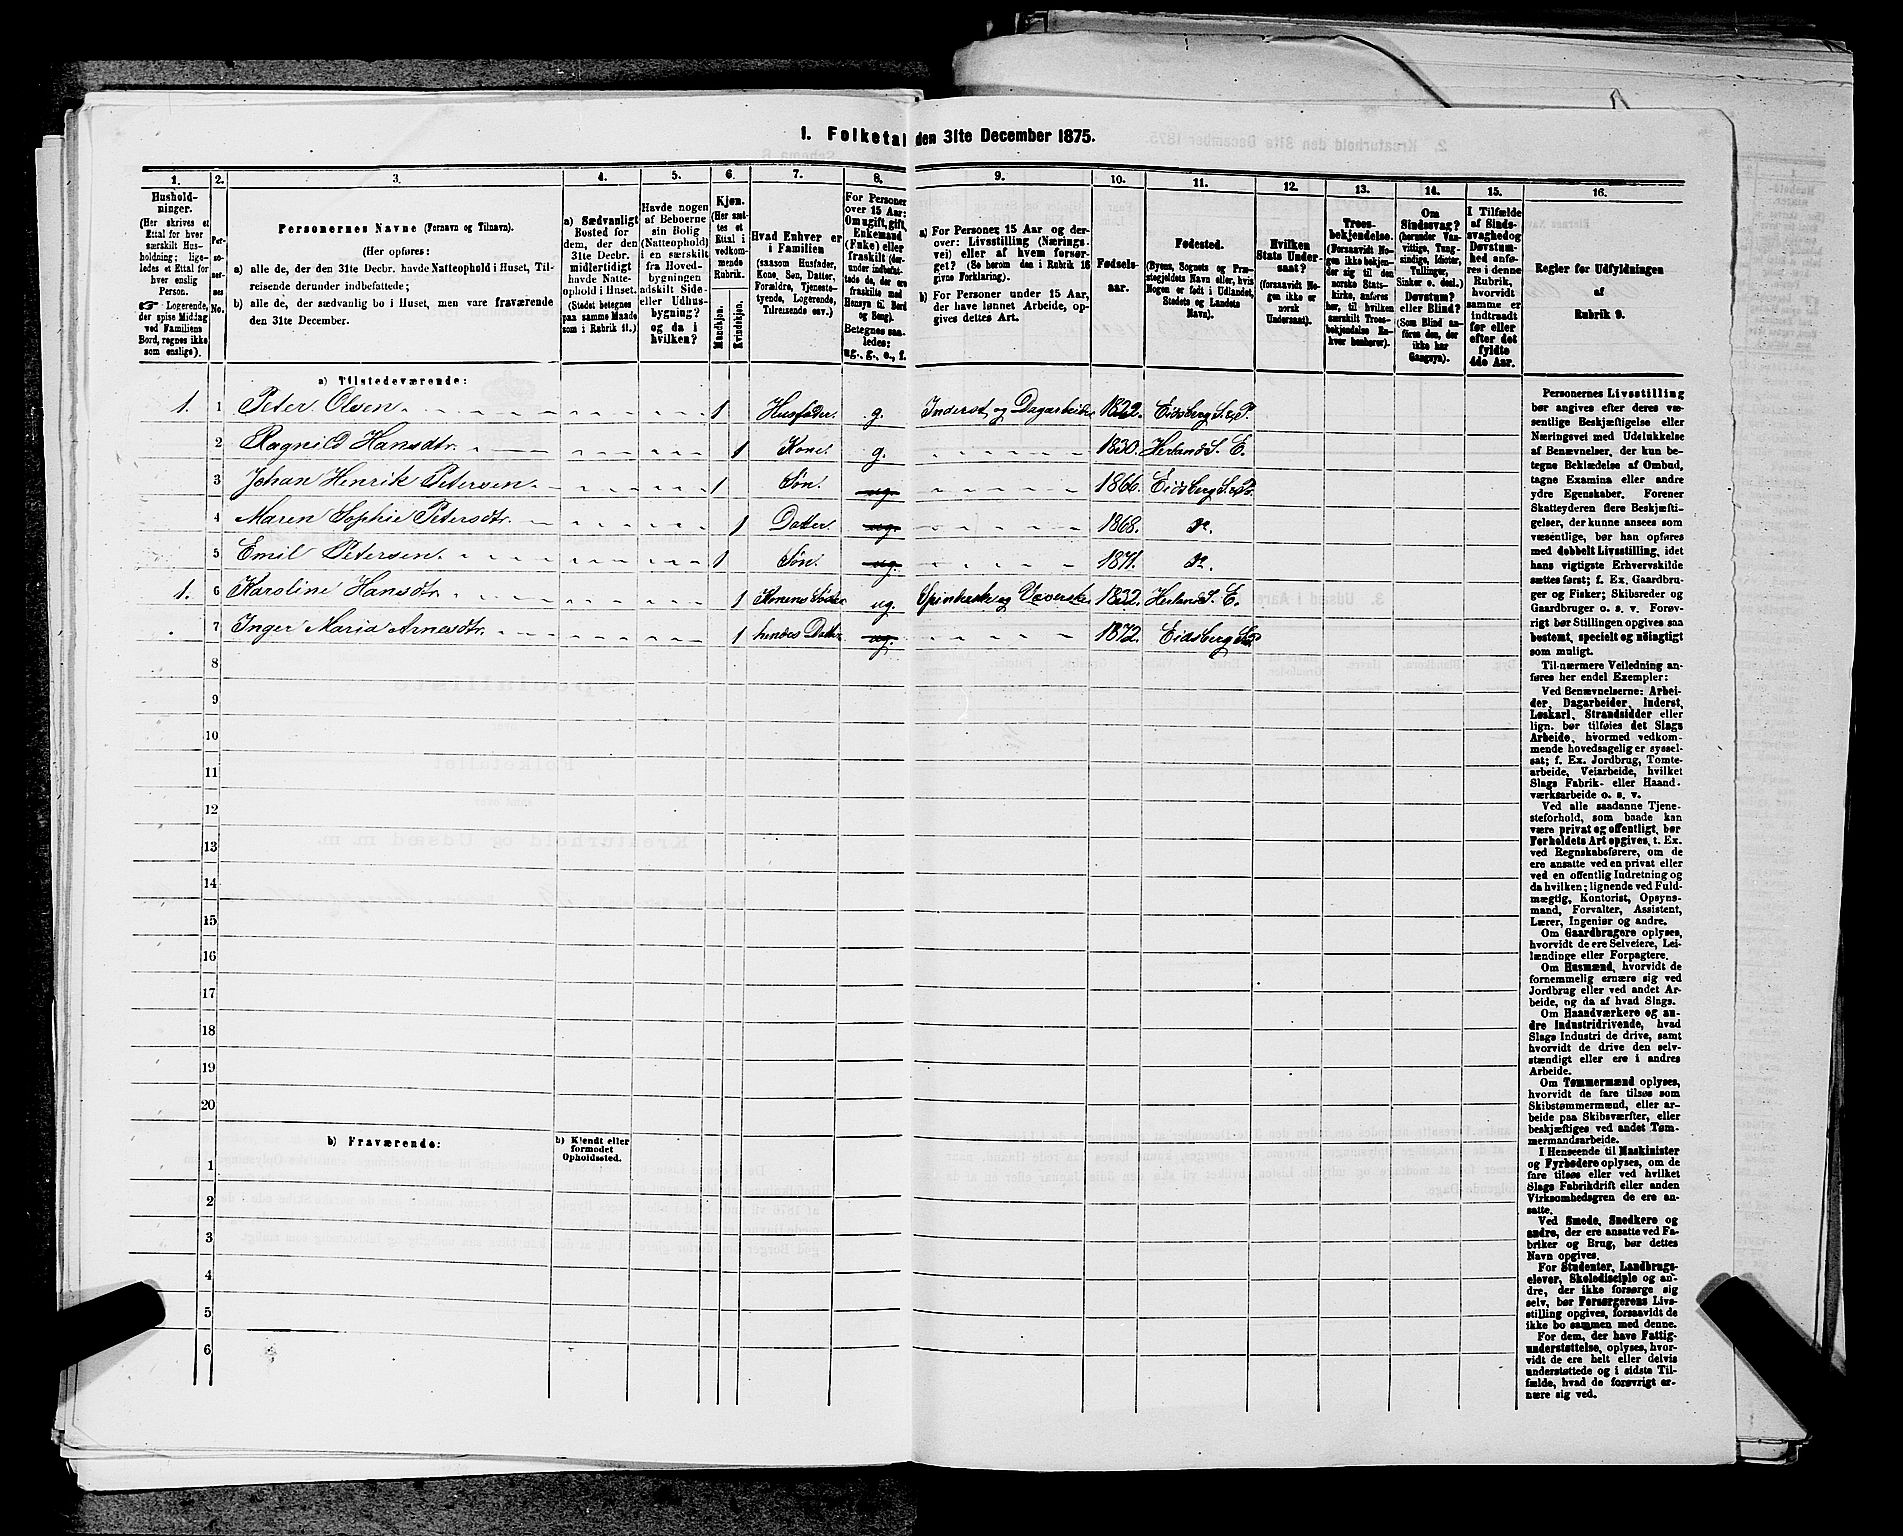 1. Folketal den 31te December 1875.
1. 2. 3. 4. 5. 6. 7. 8. 9. 10. 11. 12. 13. 14. 15. 16.
Hushold-
ninger.
(Her skrives et
Ettal for hver
særskilt Hus-
holdning; lige-
ledes et Ettal for
hver enslig
Person.
☞ Logerende,
der spise Middag
ved Familiens
Bord, regnes ikke
som enslige).
Per-
so-
ner-
nes
No.
Personernes Navne (Fornavn og Tilnavn).
(Her opføres:
a) alle de, der den 31te Decbr. havde Natteophold i Huset, Til-
reisende derunder indbefattede;
b) alle de, der sædvanlig bo i Huset, men vare fraværende
den 31te December.
a) Sædvanligt
Bosted for
dem, der den
31te Decbr.
midlertidigt
havde Natte-
ophold i Huset.
(Stedet betegnes
paa samme Maade
som i Rubrik 11.)
Havde nogen
af Beboerne
sin Bolig
(Natteophold)
i en særskilt
fra Hoved-
bygningen
adskilt Side-
eller Udhus-
bygning?
og da i
hvilken?
Kjøn.
(Her sæt-
tes et
Ettal i
vedkom-
mende
Rubrik.
Mandkjøn.
Kvindekjøn.
Hvad Enhver er
i Familien
(saasom Husfader,
Kone, Søn, Datter,
Forældre, Tjeneste-
tyende, Logerende,
Tilreisende osv.)
For Personer
over 15 Aar:
Om ugift, gift,
Enkemand
(Enke) eller
fraskilt (der-
under indbefat-
tede de, der ere
fraskilte med
Hensyn til Bord
og Seng).
Betegnes saa-
ledes:
ug., g., e., f.
a) For Personer 15 Aar og der-
over: Livsstilling (Nærings-
vei) eller af hvem forsør-
get? (Se herom den i Rubrik 16
givne Forklaring).
b) For Personer under 15 Aar,
der have lønnet Arbeide, op-
gives dettes Art.
Fødsels-
aar.
Fødested.
(Byens, Sognets og Præ-
stegjeldets Navn eller, hvis
Nogen er født i Udlandet,
Stedets og Landets
Navn).
Hvilken
Stats Under-
saat?
(forsaavidt No-
gen ikke er
norsk
Undersaat).
Troes-
bekjendelse.
(Forsaavidt No-
gen ikke bekjen-
der sig til den
norske Stats-
kirke, anføres
her, til hvilken
særskilt Troes-
bekjendelse En-
hver henhører).
Om
Sindssvag?
(herunder Van-
vittige, Tung-
sindige, Idioter,
Tullinger,
Sinker o. desl.)
Døvstum?
eller Blind?
(Som Blind an-
føres den, der
ikke har
Gangsyn).
I Tilfælde
af Sinds-
svaghed og
Døvstum-
hed anfø-
res i denne
Rubrik,
hvorvidt
samme er
indtraadt
før eller
efter det
fyldte
4de Aar.
Regler for Udfyldningen
af
Rubrik 9.
a) Tilstedeværende:
1. 1 Peter Olsen 1 Husfader. g. Inderst og Dagarbeider 1822. Eidsberg S. & P.
2 Ragnild Hansdtr. 1 Kone g. 1830. Herland S. E.
3 Johan Henrik Petersen 1 Søn. ug. 1866. Eidsberg S. & P.
4 Maren Sophie Petersdtr. 1 Datter. ug. 1868. do.
5 Emil Petersen. 1 Søn. ug. 1871. do.
1. 6 Karoline Hansdtr. 1 Konens Søster ug. Spinderske og Væverske 1832. Herland S. E.
7 Inger Maria Arnesdtr. 1 hendes Datter ug. 1872. Eidsberg S. & P.
8
9
10
11
12
13
14
15
16
17
18
19
20
b) Fraværende:
b) Kjendt eller
formodet
Opholdssted.
1
2
3
4
5
6
Personernes Livsstilling
bør angives efter deres væ-
sentlige Beskjæftigelse eller
Næringsvei med Udelukkelse
af Benævnelser, der kun be-
tegne Beklædelse af Ombud,
tagne Examina eller andre
ydre Egenskaber. Forener
Skatteyderen flere Beskjæfti-
gelser, der kunne ansees som
væsentlige, bør han opføres
med dobbelt Livsstilling, idet
hans vigtigste Erhvervskilde
sættes først; f. Ex. Gaardbru-
ger og Fisker; Skibsreder og
Gaardbruger o. s. v. Forøv-
rigt bør Stillingen opgives saa
bestemt, specielt og nöiagtigt
som muligt.
Til nærmere Veiledning an-
føres her endel Exempler:
Ved Benævnelserne: Arbei-
der, Dagarbeider, Inderst,
Løskarl, Strandsidder eller
lign. bør tilføies det Slags
Arbeide, hvormed vedkom-
mende hovedsagelig er syssel-
sat; f. Ex. Jordbrug, Tomte-
arbeide, Veiarbeide, hvilket
Slags Fabrik- eller Haand-
værksarbeide o. s. v.
Ved alle saadanne Tjene-
steforhold, som baade kan
være privat og offentligt, bør
Forholdets Art opgives, t. Ex.
ved Regnskabsførere, om de
ere ansatte ved en privat eller
ved en offentlig Indretning og
da hvilken; lignende ved Fuld-
mægtig, Kontorist, Opsyns-
mand, Forvalter, Assistent,
Lærer, Ingeniør og andre.
Om Gaardbrugere oplyses,
hvorvidt de ere Selveiere, Lei-
lændinge eller Forpagtere.
Om Husmænd, hvorvidt de
fornemmelig ernære sig ved
Jordbrug eller ved andet Ar-
beide, og da af hvad Slags.
Om Haandværkere og an-
dre Industridrivende, hvad
Slags Industri de drive, samt
hvorvidt de drive den selv-
stændigt eller ere i andres
Arbeide.
Om Tømmermænd oplyses,
hvorvidt de fare tilsøs som
Skibstømmermænd, eller ar-
beide paa Skibsværfter, eller
beskjæftiges ved andet Tøm-
mermandsarbeide.
I Henseende til Maskinister
og Fyrbødere oplyses, om de
fare tilsøs eller ved hvilket
Slags Fabrikdrift eller anden
Virksomhedsgren de ere an-
satte.
Ved Smede, Snedkere og
andre, der ere ansatte ved Fa-
briker og Brug, bør dettes
Navn opgives.
For Studenter, Landbrugs-
elever, Skoledisciple og an-
dre, der ikke forsørge sig
selv, bør Forsørgerens Livs-
stilling opgives, forsaavidt de
ikke bo sammen med denne.
For dem, der have Fattig-
understøttelse, oplyses, hvor-
vidt de ere helt eller delvis
understøttede og i sidste Til-
fælde, hvad de forøvrigt er-
nære sig ved.